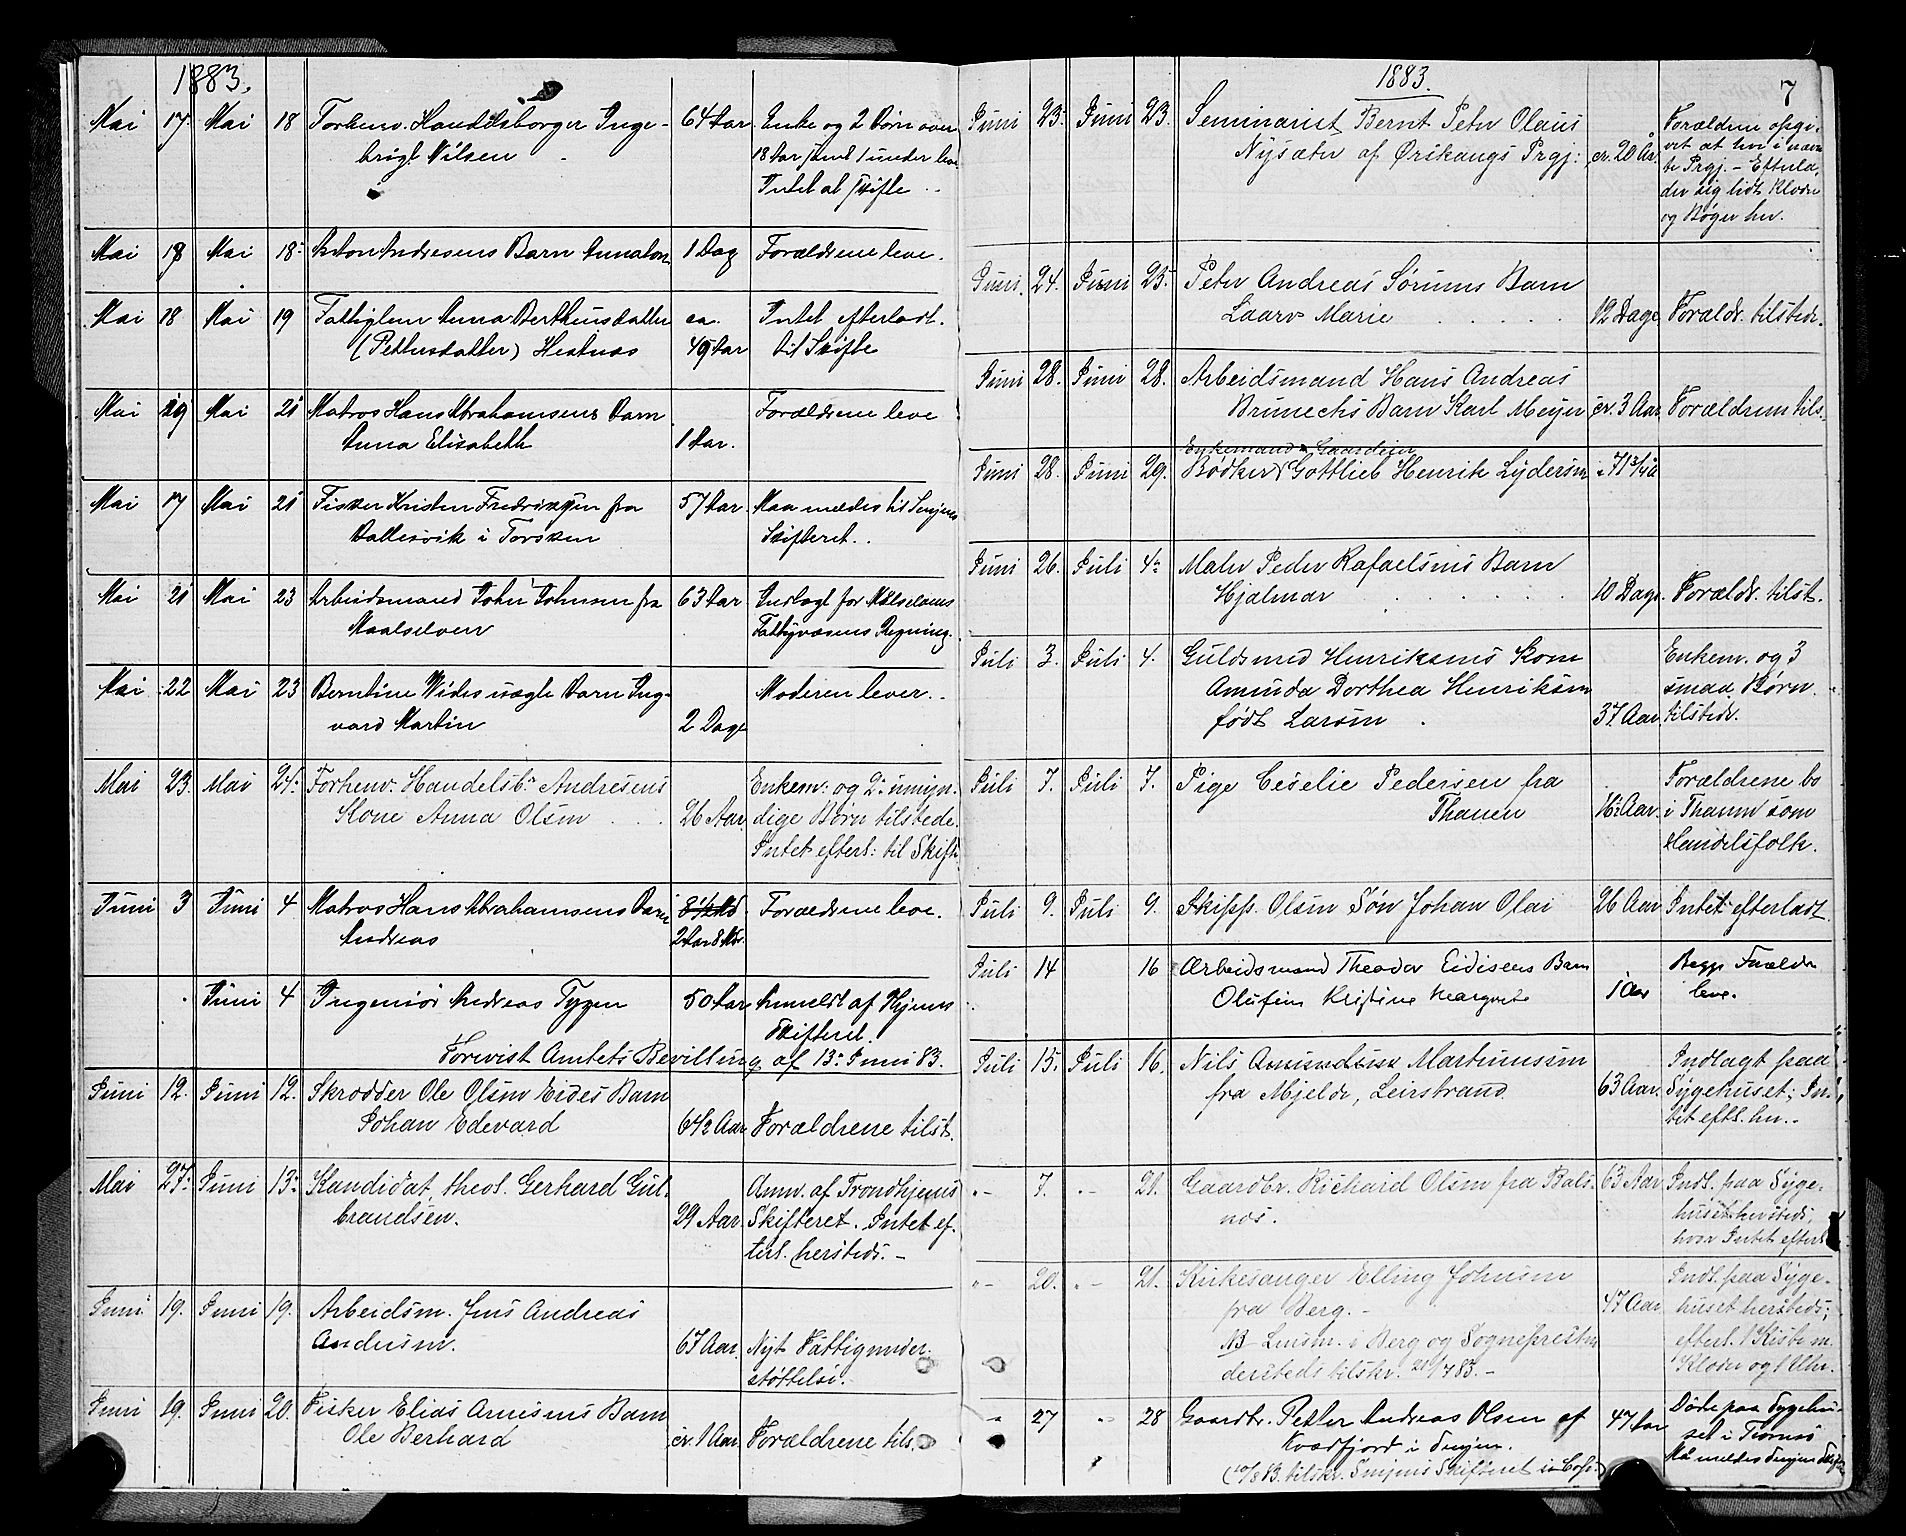 1883.
Mai 17. Mai 18 Forhenv. Handelsborger Inge- 64 Aar Enke og 2 Børn over
brigt Nilsen 18 Aar samt 1 under leve
Intet at skifte
Mai 18 Mai 18 Anton Andresens Barn 1 Dag Forældrene leve.
Mai 18 Mai 19 Fattiglem Anna Bertheusdatter ca. Intet efterladt
(Pettersdatter) Hestnæs 49 Aar til Skifte
Mai 19 Mai 21 Matros Hans Abrahamsens Barn Forældrene leve
Anna Elisabeth 1 Aar.
Mai 17 Mai 21 Fisker Kristen Fredriksen fra 57 Aar. Maa meldes til Senjens
i Torsken Skifteret.
Mai 21 Mai 23 Arbeidsmand John Johnsen fra 63 Aar Indlagt for Målselvens
Maalselven Fattigvæsens Regning.
Mai 22 Mai 23 Berntine Wides uægte Barn Ing- Moderen lever.
vard Martin 2 Dage
Mai 23. Mai 24. Forhenv. Handelsb. Andresens Enkem. og 2 umyn-
Kone Anna Olsen 26 Aar. dige Børn tilstede.
Intet efterl. til Skifte
Juni 3 Juni 4 Matros Hans Abrahamsens Barn 8 1/2 Md. Forældrene leve.
Andreas 2 Aar 8 Mdr.
Juni 4 Ingeniør Andreas Tygen 50 Aar Anmeldt af
Skifteret.
Forevist Amtets Bevilling af 13. Juni 83.
Juni 12. Juni 12. Skrædder Ole Olsen Eides Barn
Johan Edevard 6 1/2 Aar Forældrene tilst.
Mai 27. Juni 13. Kandidat theol. Gerhard Gul- Anm. af Trondhjems
brandsen. 29 Aar. Skifteret. Intet ef-
terl. hersteds. -
Juni 19. Juni 19. Arbeidsm. Jens Andreas
Andersen. 67 Aar. Nyt Fattigunder-
støttelse.
Juni 19. Juni 20. Fisker Elias Arnesens Barn
Ole Berhard cr. 1 Aar. Forældrene tils.
1883. 7
Juni 23. Juni 23. Seminarist Bernt Peter Olaus Forældrene opgi-
Nysæter af Ørskougs Prgj: cr. 20 Aar. vet at bo i nævn-
te Prgj. - Efterla-
der sig lidt Klæder
og Bøger her.
Juni 24. Juni 25. Peter Andreas Sørums Barn
Laara Marie 12 Dage Forældr. tilstede.
Juni 28. Juni 28. Arbeidsmand Hans Andreas
Brunechs Barn Karl Meyer cr. 3 Aar. Forældrene tils.
Enkemand & Gaardeier
Juni 28. Juni 29. Bødker Gottlieb Henrik Lydersen 71 3/4
Juni 26. Juli 4. Maler Peder Rafaelsens Barn
Hjalmar 10 Dage. Forældr. tilst.
Juli 3. Juli 4. Guldsmed Henriksens Kone Enkem. og 3
Aminda Dorthea Henriksen smaa Børn
født Larsen 37 Aar. tilstede.
Juli 7. Juli 7. Pige Ceselie Pedersen fra Forældrene bo
Thanen 16 Aar. i Thanen som
Handelsfolk.
Juli 9. Juli 9. Skipp. Olsens Søn Johan Olai 26 Aar Intet efterladt
Juli 14 16 Arbeidsmand Theodor Eidisens Barn Begge Forældre
Olufine Kristine Margrete 1 Aar leve.
Juli 15. Juli 16. Nils Amundsen Martinussen Indlagt paa
fra Mjelde, Leirstrand. 63 Aar. Sygehuset; In-
tet eftl. her.
"- 7. "- 21. Gaardbr. Richard Olsen fra Bals- 63 Aar Indl. paa Syge-
nes. huset hersteds,
hvor Intet efterl.
"- 20. "- 21. Kirkesanger Elling Johnsen Indl. paa Syge-
fra Berg. - 47 Aar huset hersteds;
NB Lensm. i Berg og Sognepresten efterl. 1 Kiste m.
dersteds tilskr. 21/7 83. - Klæder og 1 Uhr.
" 27 " 28 Gaardbr. Petter Andreas Olsen af 47 Aar Døde paa Sygehu-
Kvæfjord i Senjen. set i Tromsø
tilskr. Senjens Skifteret Må meldes Senjens